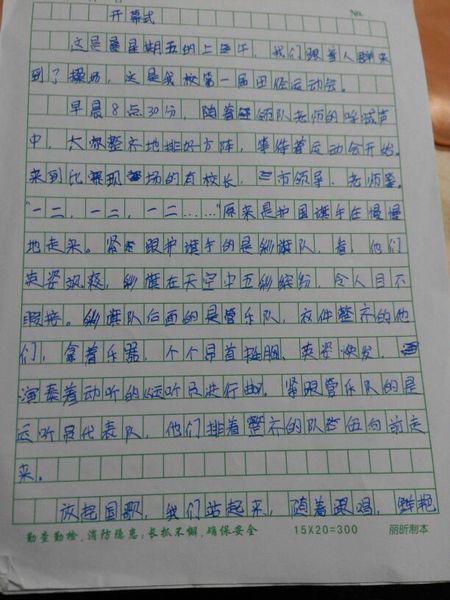 No.
开幕式
这是星期五的上午，我们跟着人群来
到了操场，这是我校第一届田径运动会。
早晨8点30分，随着领队老师的呼喊声
中，大家整齐地排好方阵，等待着运动会开始。
来到比赛现场的有校长，市领导，老师等。
"一二，一二，一二……"原来是护国旗手在慢慢
地走来。紧跟护旗手的是彩旗队，看，他们
英姿飒爽，彩旗在天空中五彩缤纷，令人目不
暇接。彩旗队后面的是管乐队，衣件整齐的他
们，拿着乐器，个个昂首挺胸，英姿焕发，
演奏着动听的《运动员进行曲。紧跟管乐队的是
运动员代表队，他们排着整齐的队伍向前走
来。
放起国歌，我们站起来，随着
勤查勤检、消防隐患；长抓不懈、确保安全
15X20=300
丽昕制本